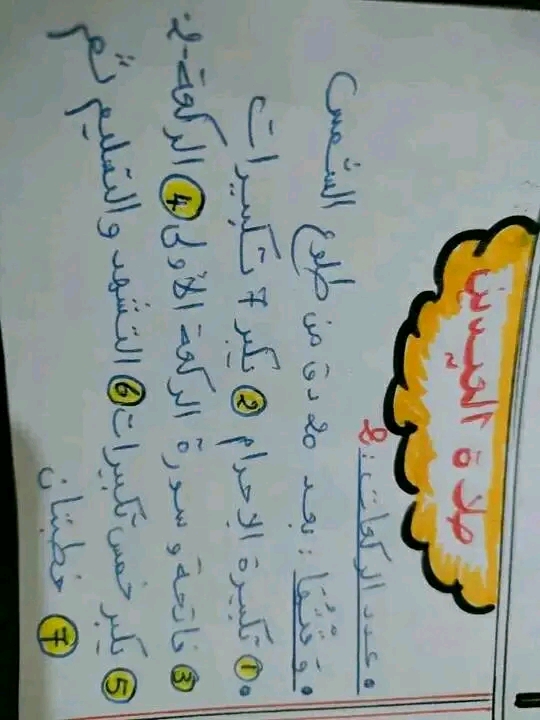 صلاة العيدين
• عدد الركعات: 2
• وقتها: بعد مدة من طلوع الشمس
• ① تكبيرة الإحرام ② يكبر 7 تكبيرات
③ فاتحة وسورة الركعة الأولى ④ الركعة -2-
⑤ يكبر خمس تكبيرات ⑥ التشهد والتسليم ثم
⑦ خطبتان